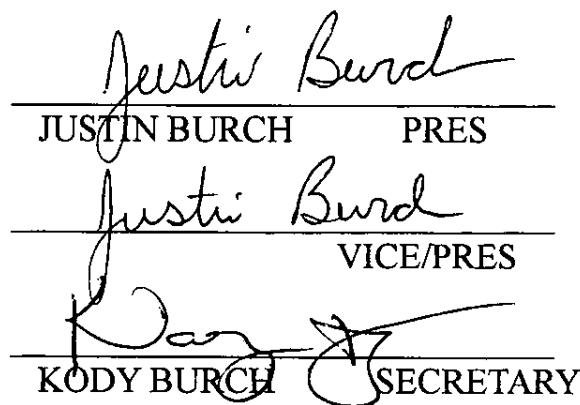 Justin Burch
JUSTIN BURCH PRES
Justin Burch
VICE/PRES
KODY BURCH SECRETARY